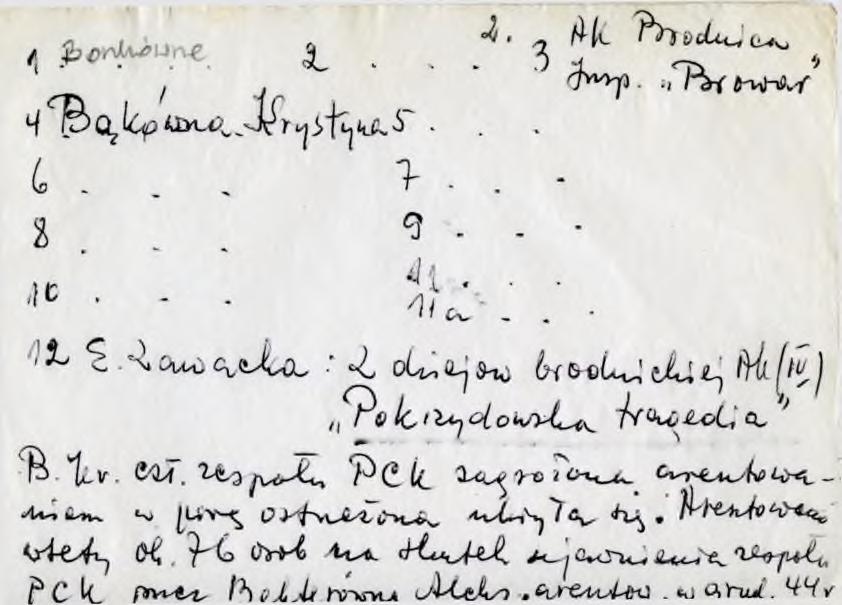 2.
1 Bonkówne 2 . . . 3 AK Brodnica
Insp. „Browar”
4 Bąkówna Krystyna 5 . . .
6 . . . 7 . . .
8 . . . 9 . . .
10 . . . 11 . . .
11a . . .
12 E. Zawacka : Z dziejow brodnickiej AK (IV)
„Pokrzydowska tragedia”
B. Kr. czł. zespołu PCK zagrożona aresztowa-
niem w porę ostrzeżona ukryła się. Aresztowano
wtedy ok. 76 osob na skutek ujawnienia zespołu
PCK przez Aleks. aresztow. w grud. 44 r